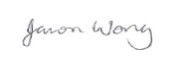 Jason Wong